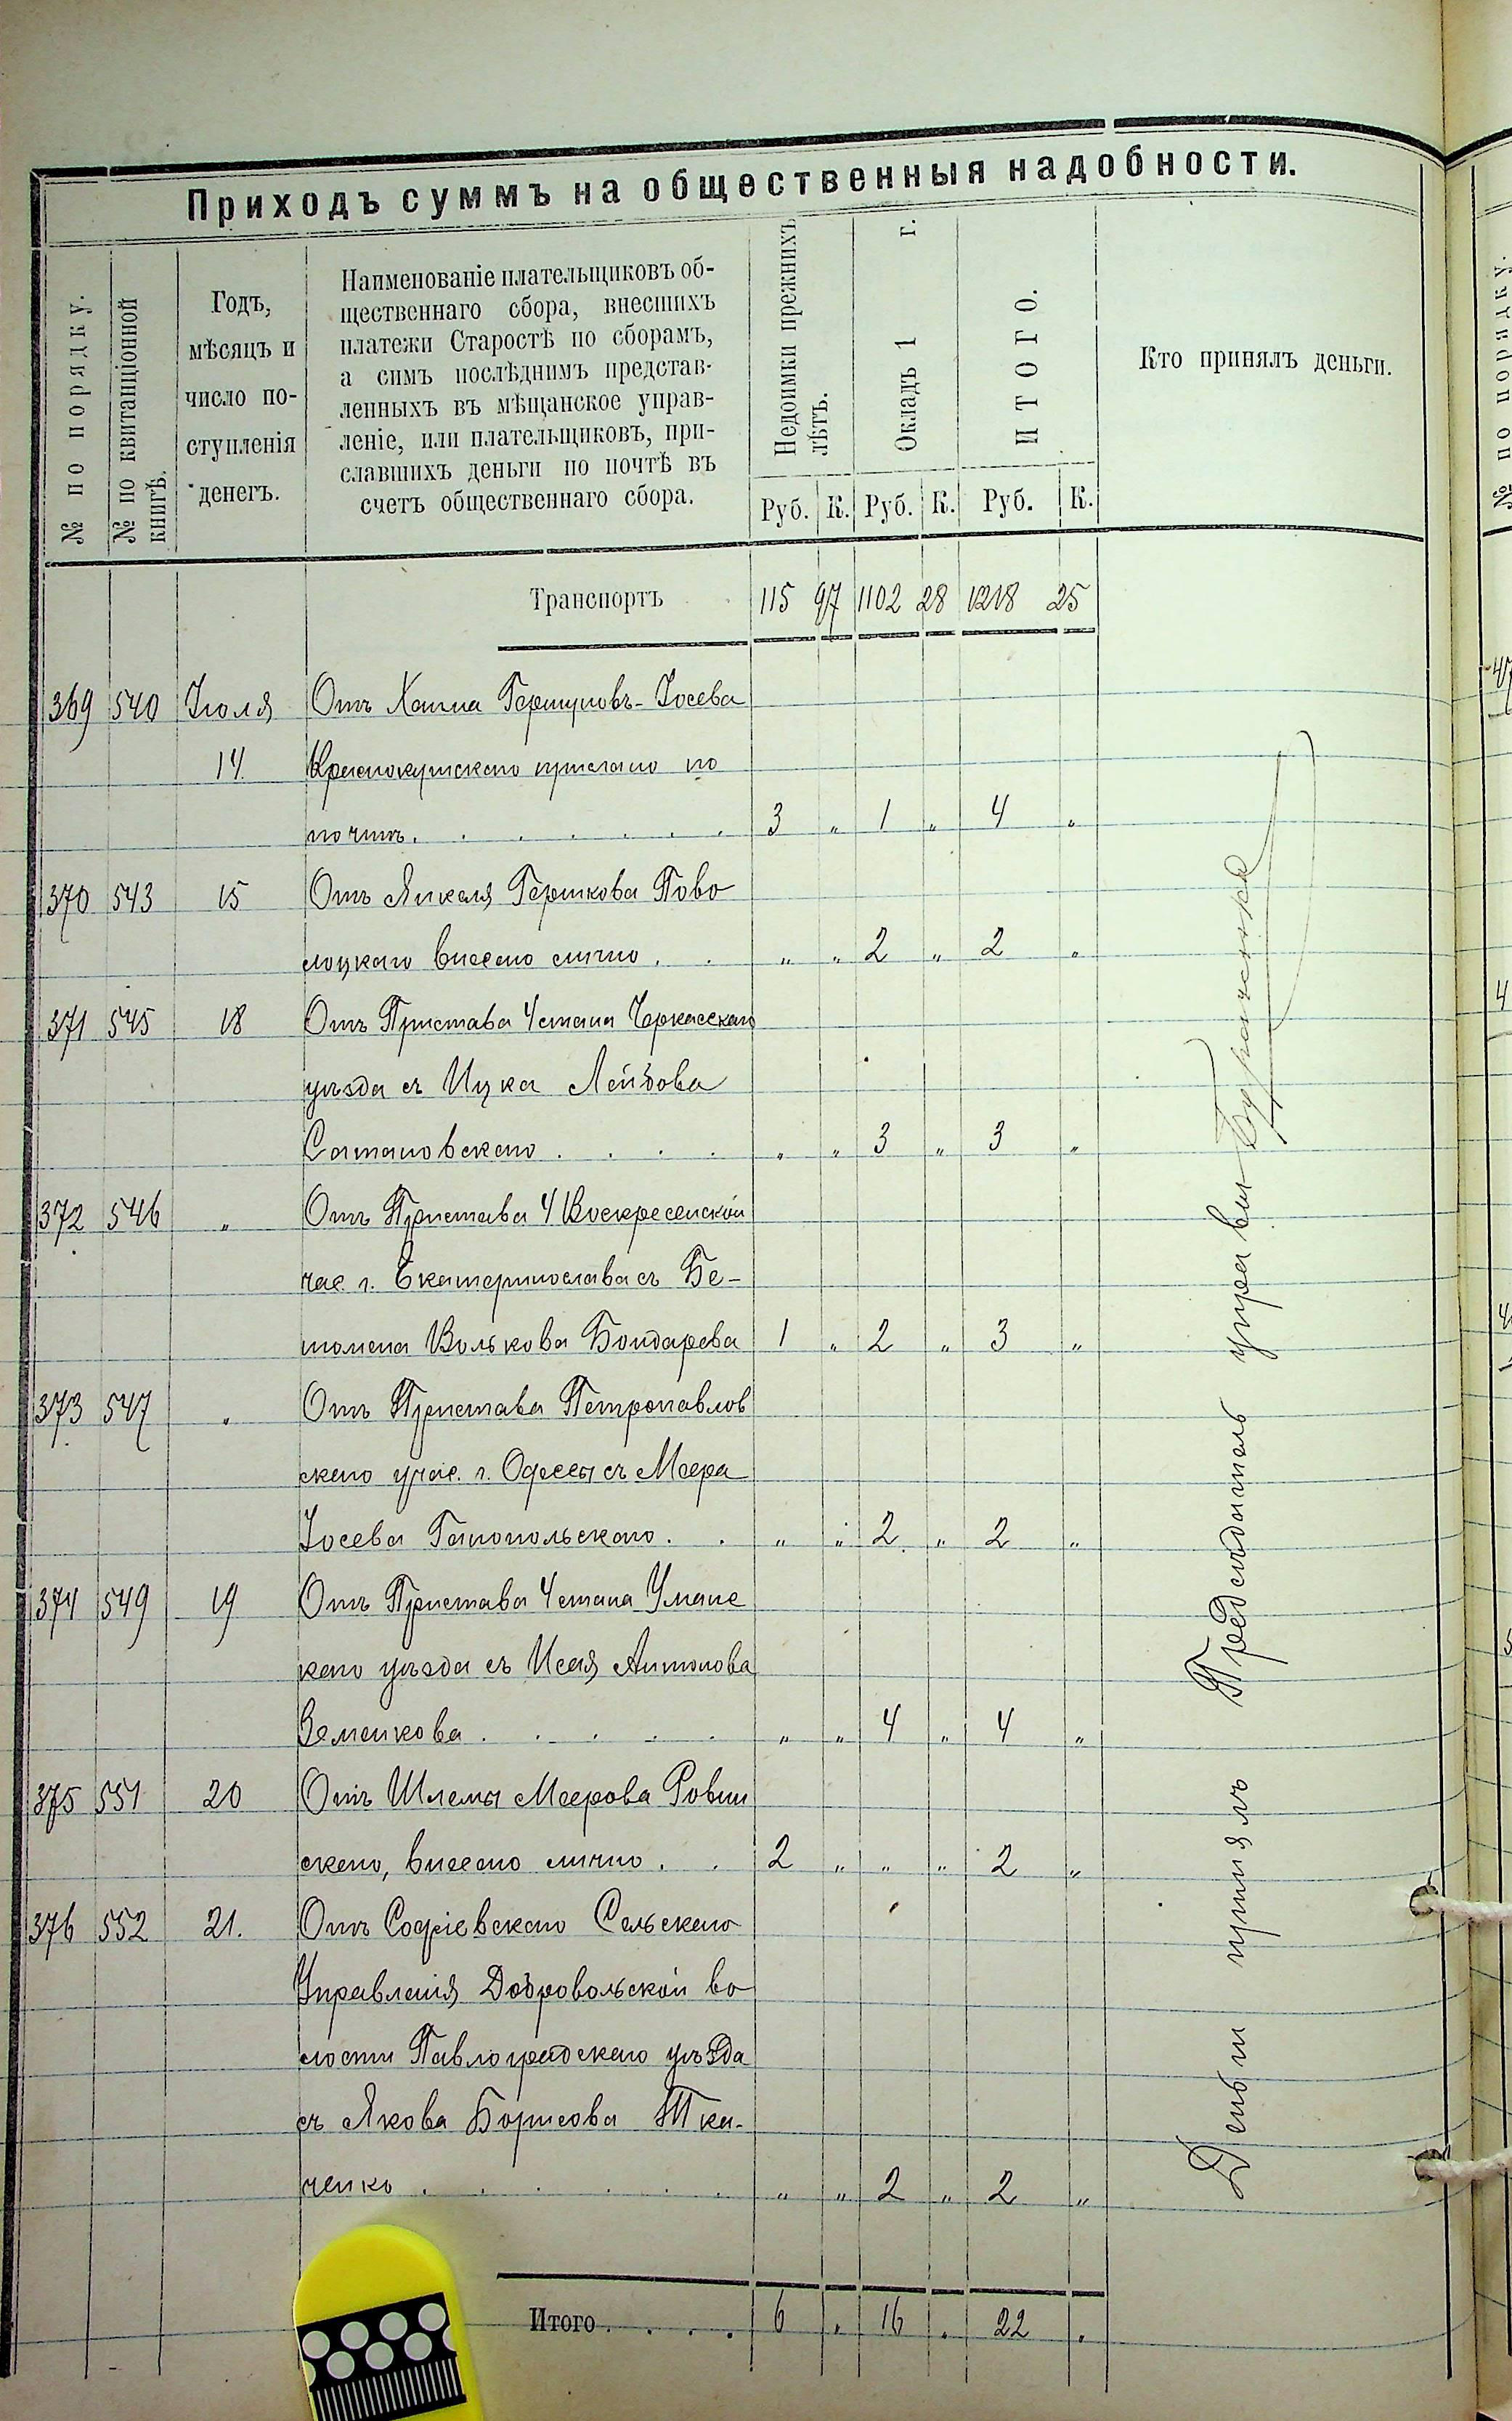 Приходъ суммъ на общественныя надобности.
№ по порядку.
№ по квитанціонной книгѣ.
Годъ,
мѣсяцъ и
число по-
ступленія
денегъ.
Наименованіе плательщиковъ об-
щественнаго сбора, внесшихъ
платежи Старостѣ по сборамъ,
а симъ послѣднимъ представ-
ленныхъ въ мѣщанское управ-
леніе, или плательщиковъ, при-
славшихъ деньги по почтѣ въ
счетъ общественнаго сбора.
Недоимки прежнихъ лѣтъ.
Окладъ 1 г.
ИТОГО.
Кто принялъ деньги.
Руб. К. Руб. К. Руб. К.
Транспортъ 115 97 1102 28 1218 25
369 540 Іюля Отъ Хаима Іосева
14 Краснокутскаго прислано по
почтѣ. 3 „ 1 „ 4 „
370 543 15 Отъ Янкеля Гершкова Пово
лоцкаго внесено лично . . „ „ 2 „ 2 „
371 545 18 Отъ Пристава 4 стана Черкасскаго
уѣзда съ Ицка Лейбова
Сатановскаго . . . . „ „ 3 „ 3 „
372 546 „ Отъ Пристава 4 Воскресенской
час. г. Екатеринослава съ Бе-
Волькова Бондарева 1 „ 2 „ 3 „
373 547 „ Отъ Пристава Петропавлов
скаго учас. г. Одессы съ Меера
Іосева Гайопольскаго . . „ „ 2 „ 2 „
374 549 19 Отъ Пристава 4 стана Уманс
каго уѣзда съ Исая Антонова
Земенкова . . . . . „ „ 4 „ 4 „
375 551 20 Отъ Шлемы Меерова Ровин
скаго, внесено лично . . 2 „ „ „ 2 „
376 552 21. Отъ Софіевскаго Сельскаго
Управленія Добровольской во
лости Павлоградскаго уѣзда
съ Якова Борисова Тка-
ченко . . . . . . „ „ 2 „ 2 „
Итого . . . . 6 „ 16 „ 22 „
Деньги принялъ Предсѣдатель управы
№ по порядку.